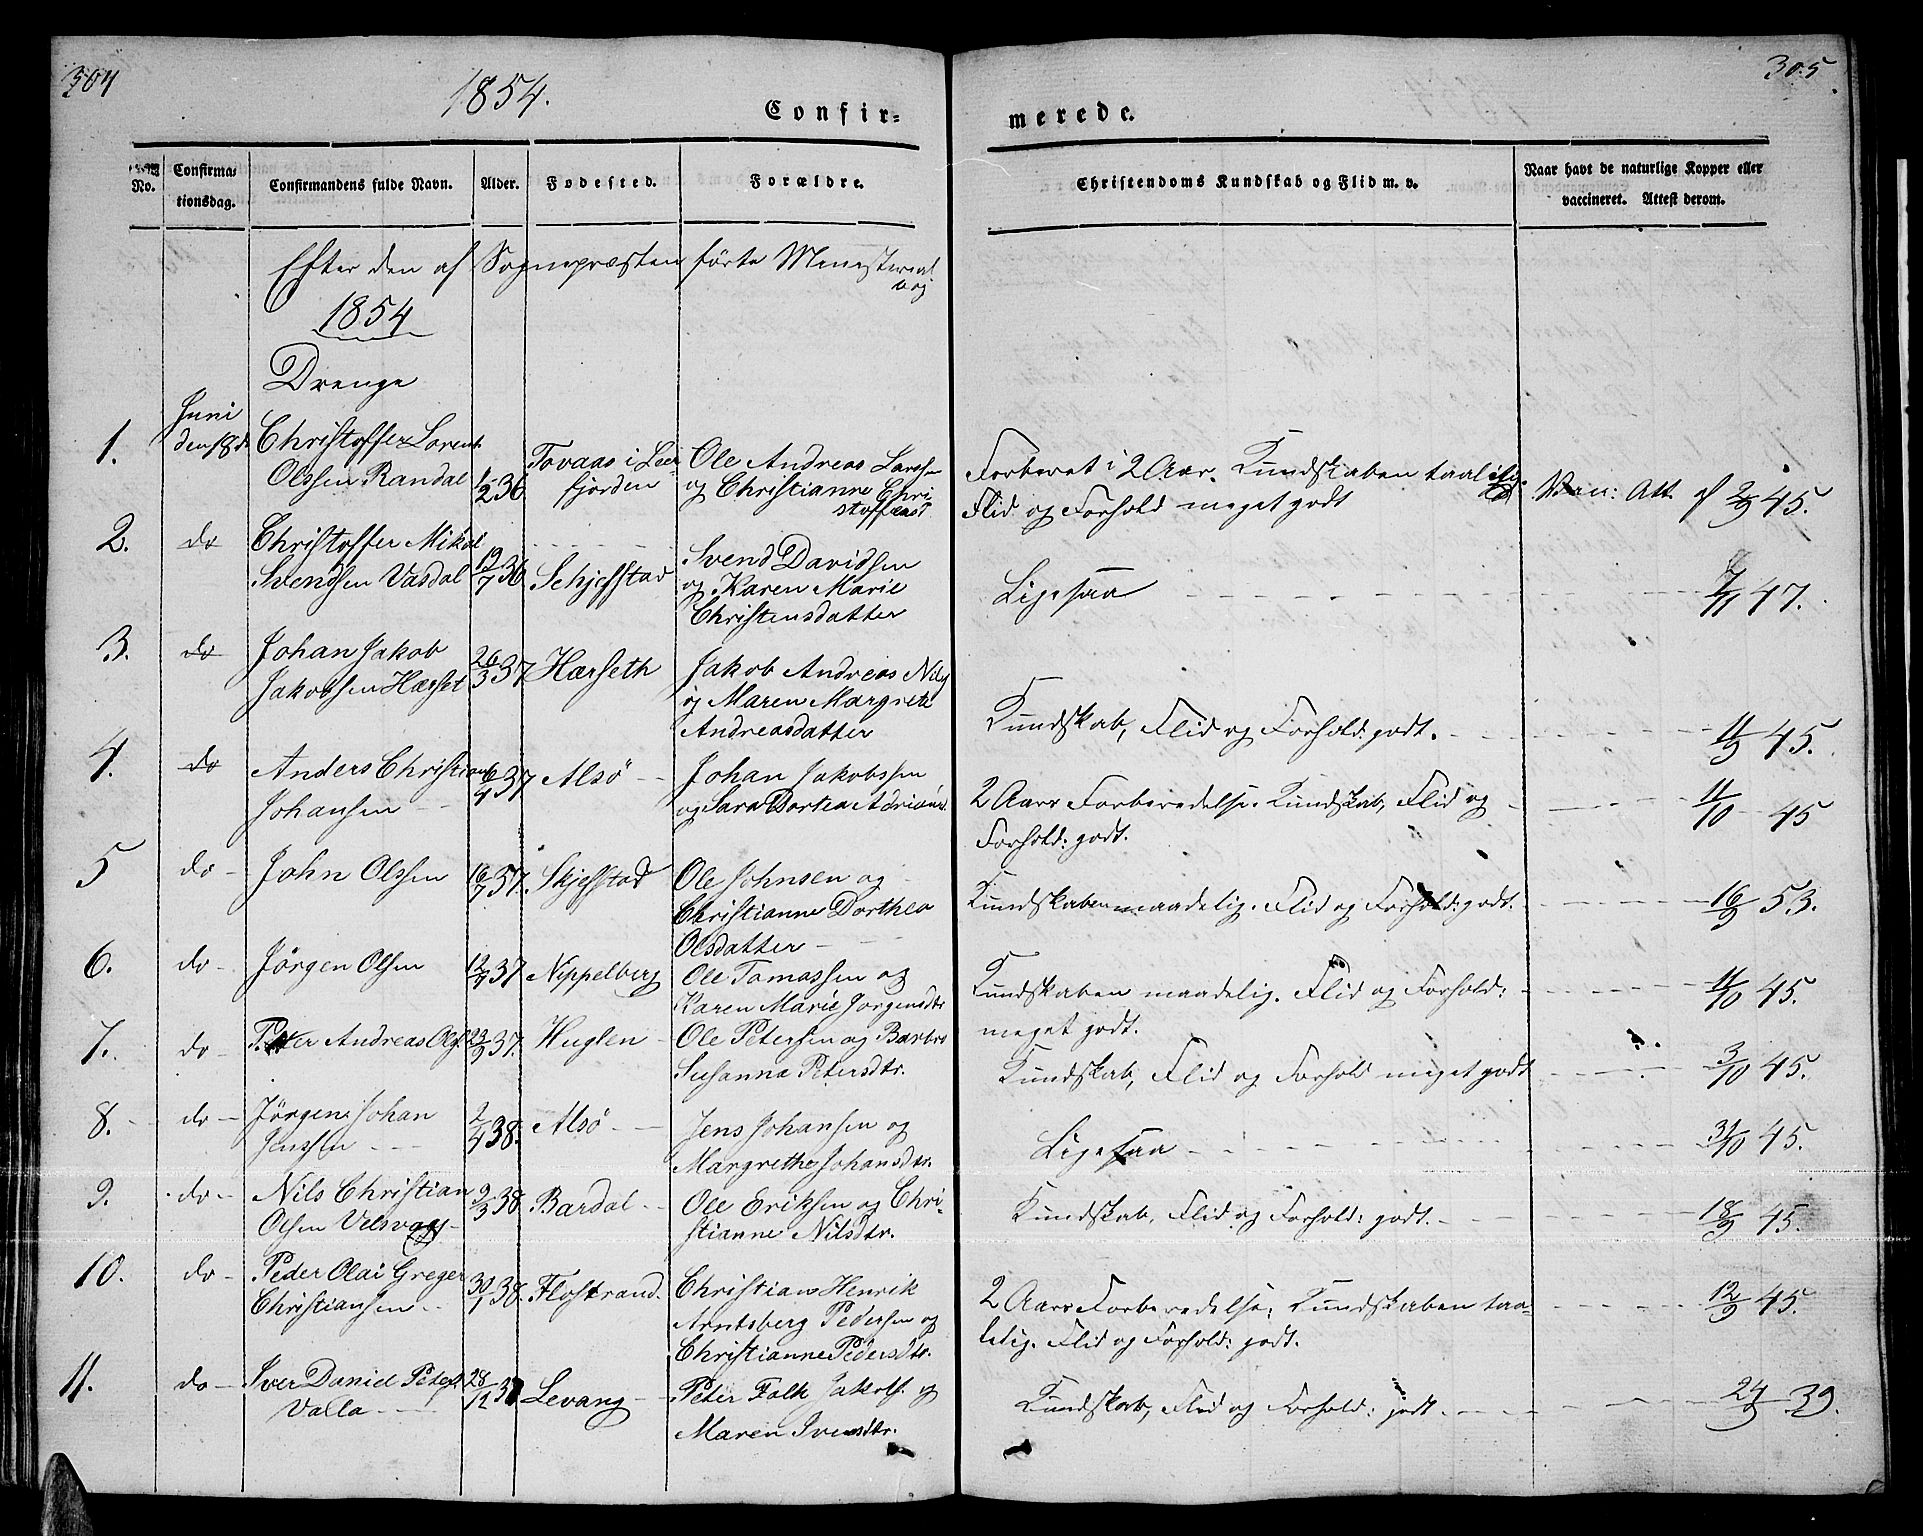 304
1854.
Confir-
merede.
305
No.
Confirma-
tionsdag.
Confirmandens fulde Navn.
Alder.
Fødested.
Forældre.
Christendoms Kundskab og Flid m. v.
Naar havt de naturlige Kopper eller
vaccineret. Attest derom.
Efter den af Sognepræsten førte Ministerial
bog
1854
Drenge
1. Juni den 18de Christoffer Lorents
Olssen Randal 1/2 36 Tovaas i Leer
fjorden Ole Andreas Larssen
og Christianne Chri-
stoffersd
Forberet i 2 Aar. Kundskaben taalelig.
Flid og Forhold meget godt Vac: Att. af 2/9 45.
2. do Christoffer Mikal
Svendsen Vasdal 19/7 36 Schjefstad Svend Davidsen
og Karen Marie
Christensdatter
Ligesaa 47.
3. do Johan Jakob
Jakobsen Hæsset 26/3 37 Hærseth Jakob Andreas Nils
og Maren Margrete
Andreasdatter
Kundskab, Flid og Forhold: godt. 11/9 45.
4. do Anders Christian
Johansen 6/4 37 Alsö Johan Jakobssen
og Sara Dortea Adriansd.
2 Aars Forberedelse. Kundskab, Flid og
Forhold: godt. 11/10 45
5 do John Olssen 16/7 37. Skjefstad Ole Johnsen og
Christianne Dorthea
Olsdatter
Kundskaben maadelig. Flid og Forhold: godt. 16/9 53.
6. do Jörgen Olsen 12/9 37 Nippelberg Ole Tomassen og
Karen Marie Jorgensdtr
Kundskaben maadelig. Flid og Forhold:
meget godt. 11/10 45.
7. do Peter Andreas Ols. 23/9 37. Huglen Ole Petersen og Barbro
Susanna Petersdtr.
Kundskab, Flid og Forhold meget godt 3/10 45.
8. do Jörgen Johan
Jenssen 2/4 38. Alsö Jens Johansen og
Margrethe Johansdtr.
Ligesaa 31/10 45.
9. do Nils Christian
Olsen Velsvaag 9/3 38 Bardal Ole Eriksen og Chri-
stianne Nilsdtr.
Kundskab, Flid og Forhold: godt. 18/9 45.
10. do Peder Olai Greger
Christiansen 30/1 38. Flostrand. Christian Henrik
Arntsberg Pedersen og
Christianne Pedersdtr.
2 Aars Forberedelse; Kundskaben taa-
lelig. Flid og Forhold: godt. 12/9 45.
11. do Iver Daniel Peters.
Valla 28/12 37 Levang Peter Falk Jakobs. og
Maren Iversdtr.
Kundskab, Flid og Forhold: godt. 24/9 39.